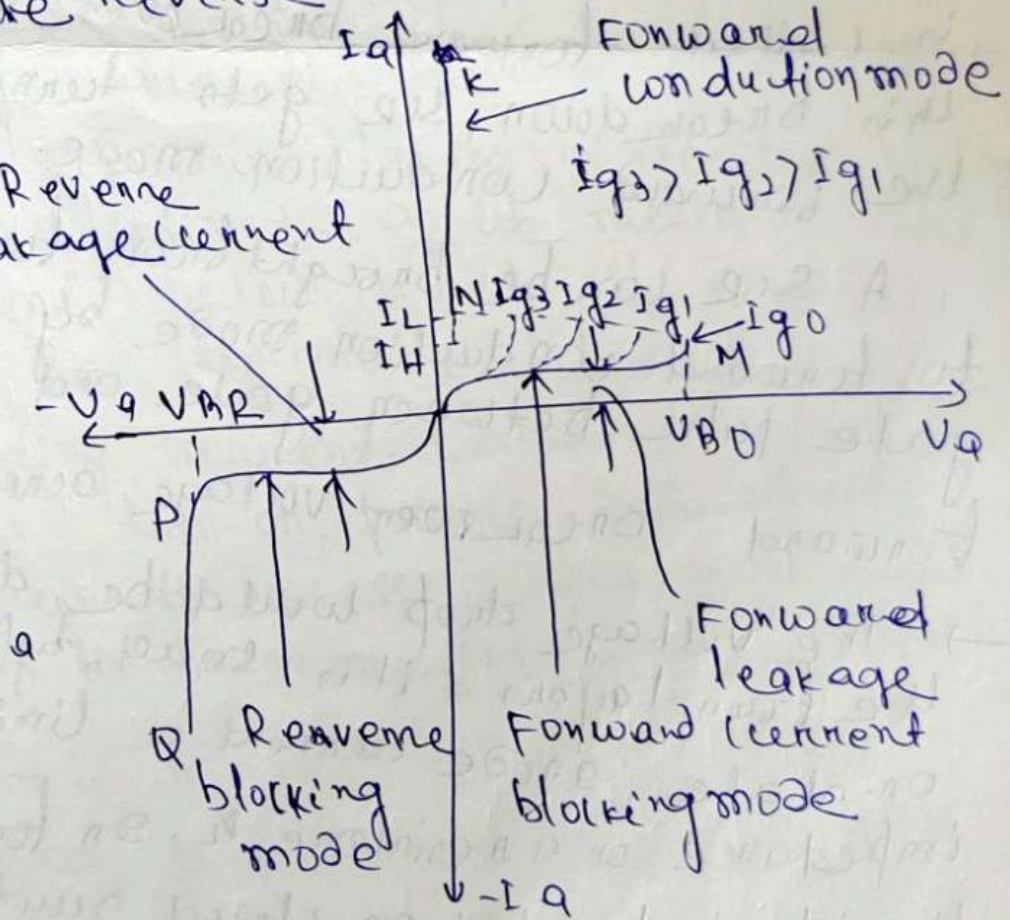 Ia
K
Forward
condution mode
Ig3 > Ig2 > Ig1
Reverse
akage current
IL
IH
N Ig3 Ig2 Ig1
Ig0
M
-Va VBR
VBO
Va
P
Q
a
Reaverse
blocking
mode
Forward
leakage
current
Forward
blocking mode
-Ia